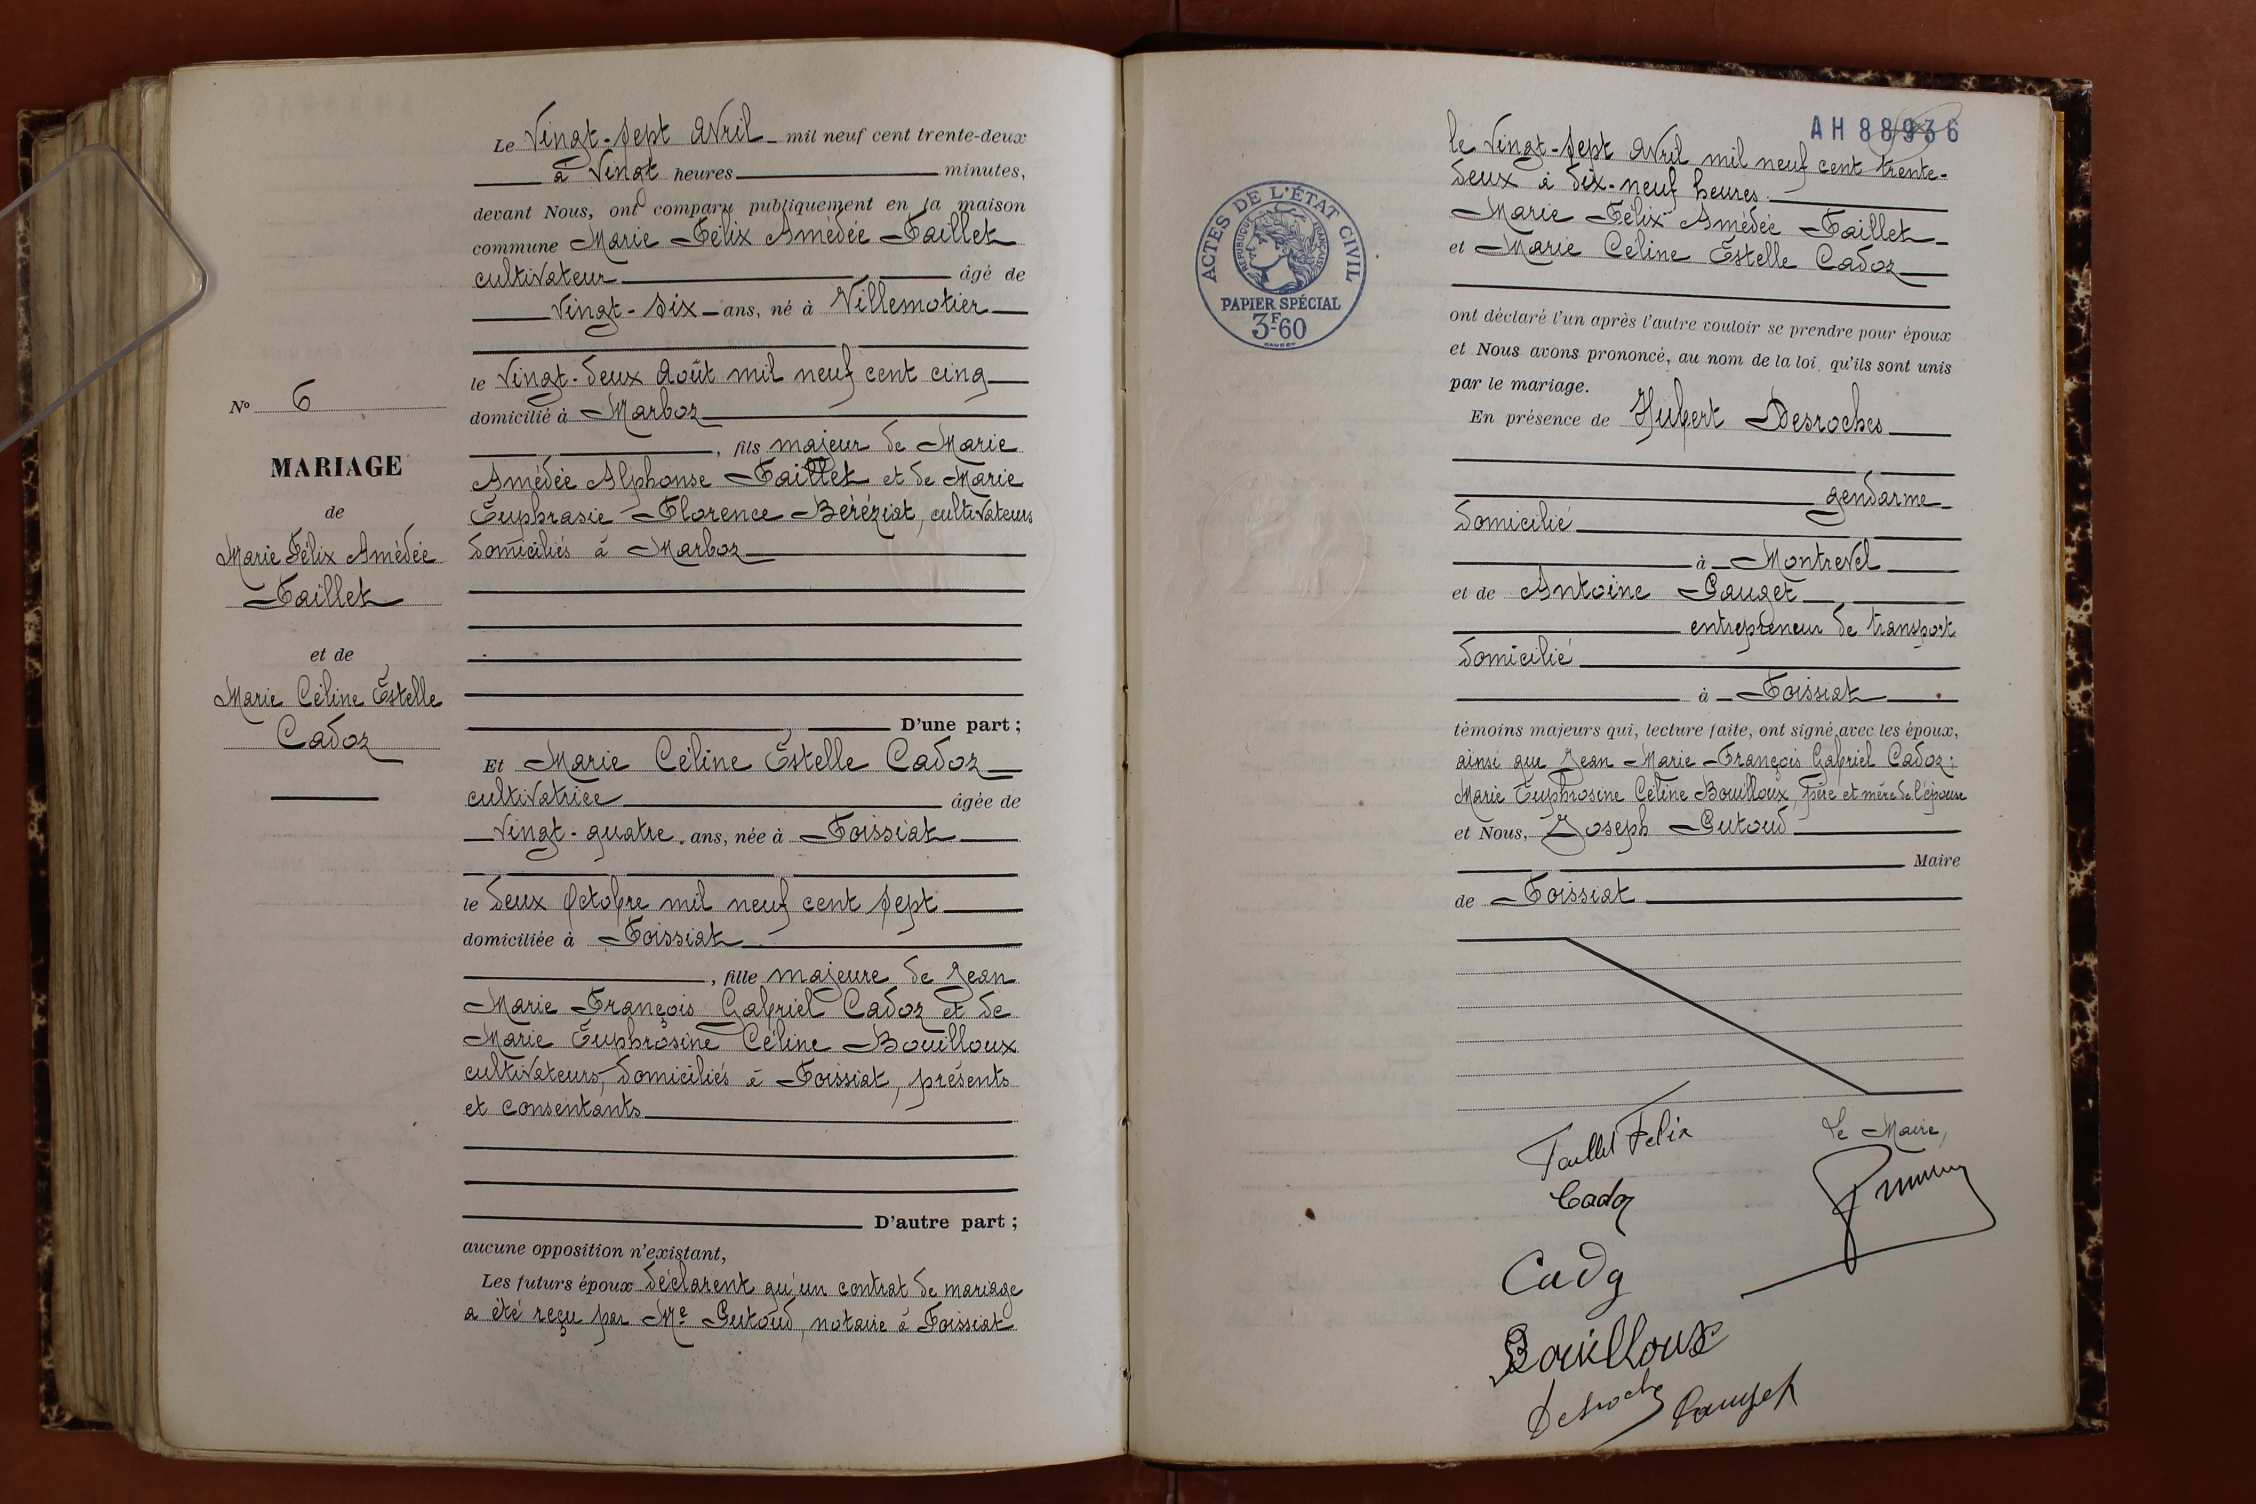 Le Vingt-Sept Avril mil neuf cent trente-deux
à Vingt heures minutes,
devant Nous, ont comparu publiquement en la maison
commune Marie Félix Amédée Faillet
cultivateur âgé de
Vingt-six ans, né à Villemotier
le Vingt-deux Août mil neuf cent cinq
domicilié à Marboz
, fils majeur de Marie
Amédée Alphonse Faillet et de Marie
Euphrasie Florence Béréziat, cultivateurs
domiciliés à Marboz
D'une part ;
Et Marie Céline Estelle Cadoz
cultivatrice âgée de
Vingt-quatre ans, née à Foissiat
le deux Octobre mil neuf cent sept
domiciliée à Foissiat
, fille majeure de Jean
Marie François Gabriel Cadoz et de
Marie Euphrosine Céline Bouilloux
cultivateurs, domiciliés à Foissiat, présents
et consentants
D'autre part ;
aucune opposition n'existant,
Les futurs époux déclarent qu'un contrat de mariage
a été reçu par Me Putoud, notaire à Foissiat
No 6
MARIAGE
de
Marie Félix Amédée
Faillet
et de
Marie Céline Estelle
Cadoz
AH 88936
le Vingt-sept Avril mil neuf cent trente-
deux à dix-neuf heures.
Marie Félix Amédée Faillet
et Marie Céline Estelle Cadoz
ont déclaré l'un après l'autre vouloir se prendre pour époux
et Nous avons prononcé, au nom de la loi, qu'ils sont unis
par le mariage.
En présence de Hubert Desroches
gendarme
domicilié
à Montrevel
et de Antoine Pauget
entrepreneur de transport
domicilié
à Foissiat
témoins majeurs qui, lecture faite, ont signé avec les époux,
ainsi que Jean Marie François Gabriel Cadoz;
Marie Euphrosine Céline Bouilloux, père et mère de l'épouse
et Nous, Joseph Putoud
Maire
de Foissiat
ACTES DE L'ÉTAT CIVIL
RÉPUBLIQUE FRANÇAISE
PAPIER SPÉCIAL
3F-60
Faillet Felix
Le Maire,
Cadoz
Cadoz
Bouilloux
Desroches Pauget